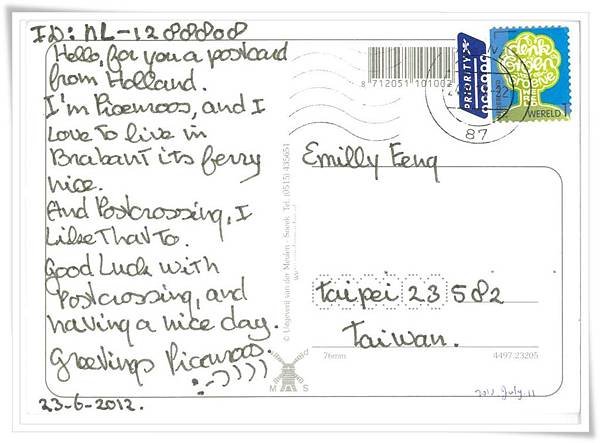 ID: NL-1288808
Hello, for you a postcard
from Holland.
I'm Picemoos, and I
Love To live in
Brabant its ferry
nice.
And Postcrossing, I
Like That To.
Good Luck with
Postcrossing, and
having a nice day.
Greetings Picemoos.
:-))))
23-6-2012.
8 712051 101002
PRIORITY
denk
WERELD 1
87
Emilly Feng
Taipei 23582
Taiwan.
© Uitgeverij van der Meulen - Sneek Tel. (0515) 435651
76mm
4497:23205
M S
2012. July. 11